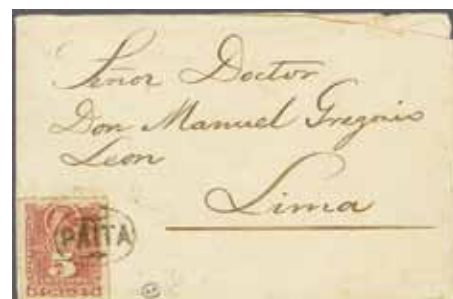 Señor Doctor
Don Manuel Gregorio
Leon
Lima
PAITA
5